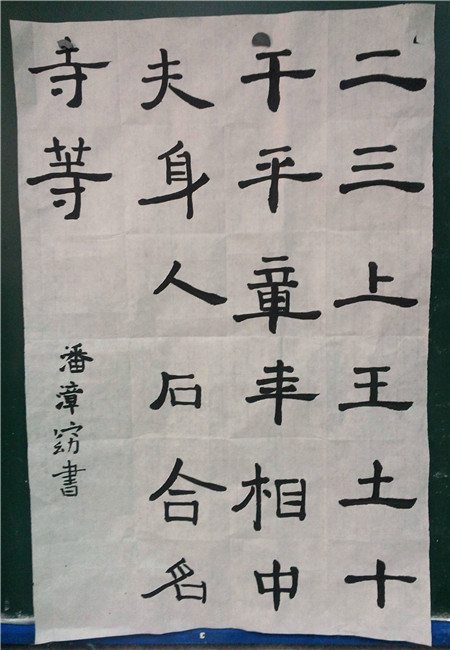 二三上王土十
干平章年相中
夫身人石合名
寺等
潘漳書